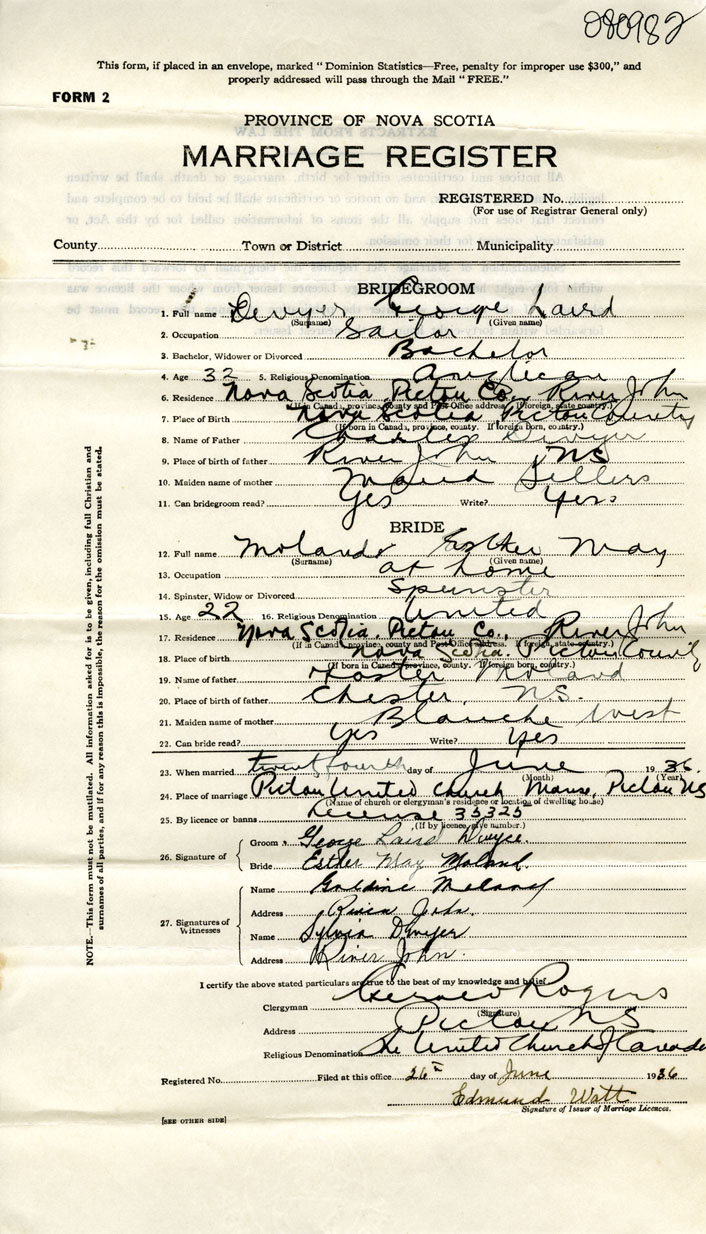 080982
This form, if placed in an envelope, marked "Dominion Statistics—Free, penalty for improper use $300," and
properly addressed will pass through the Mail "FREE."
FORM 2
PROVINCE OF NOVA SCOTIA
MARRIAGE REGISTER
REGISTERED No.
(For use of Registrar General only)
County Town or District Municipality
BRIDEGROOM
1. Full name Dwyer George Laird
(Surname) (Given name)
2. Occupation Sailor
3. Bachelor, Widower or Divorced Bachelor
4. Age 32 5. Religious Denomination Anglican
6. Residence Nova Scotia, Pictou Co., River John
(If in Canada, province, county and Post Office address. If foreign, state country.)
7. Place of Birth Nova Scotia, Pictou County
(If born in Canada, province, county. If foreign born, country.)
8. Name of Father Charles Dwyer
9. Place of birth of father River John, NS
10. Maiden name of mother Maud Sellers
11. Can bridegroom read? Yes Write? Yes
BRIDE
12. Full name Moland Esther May
(Surname) (Given name)
13. Occupation at home
14. Spinster, Widow or Divorced Spinster
15. Age 22 16. Religious Denomination United
17. Residence Nova Scotia, Pictou Co., River John
(If in Canada, province, county and Post Office address. If foreign, state country.)
18. Place of birth Nova Scotia, Pictou County
(If born in Canada, province, county. If foreign born, country.)
19. Name of father Foster Moland
20. Place of birth of father Chester, N.S.
21. Maiden name of mother Blanche West
22. Can bride read? Yes Write? Yes
23. When married twenty fourth day of June 1936.
(Month) (Year)
24. Place of marriage Pictou United Church Manse, Pictou NS
(Name of church or clergyman's residence or location of dwelling house)
25. By licence or banns License 35325
(If by licence, give number.)
26. Signature of
Groom George Laird Dwyer
Bride Esther May Moland.
27. Signatures of Witnesses
Name Moland
Address River John.
Name Sylvia Dwyer
Address River John.
I certify the above stated particulars are true to the best of my knowledge and belief.
Clergyman Gerald Rogers
(Signature)
Address Pictou NS
Religious Denomination The United Church of Canada
Registered No. Filed at this office 26th day of June 1936
Edmund Watt
Signature of Issuer of Marriage Licences.
[SEE OTHER SIDE]
NOTE.—This form must not be mutilated. All information asked for is to be given, including full Christian and
surnames of all parties, and if for any reason this is impossible, the reason for the omission must be stated.